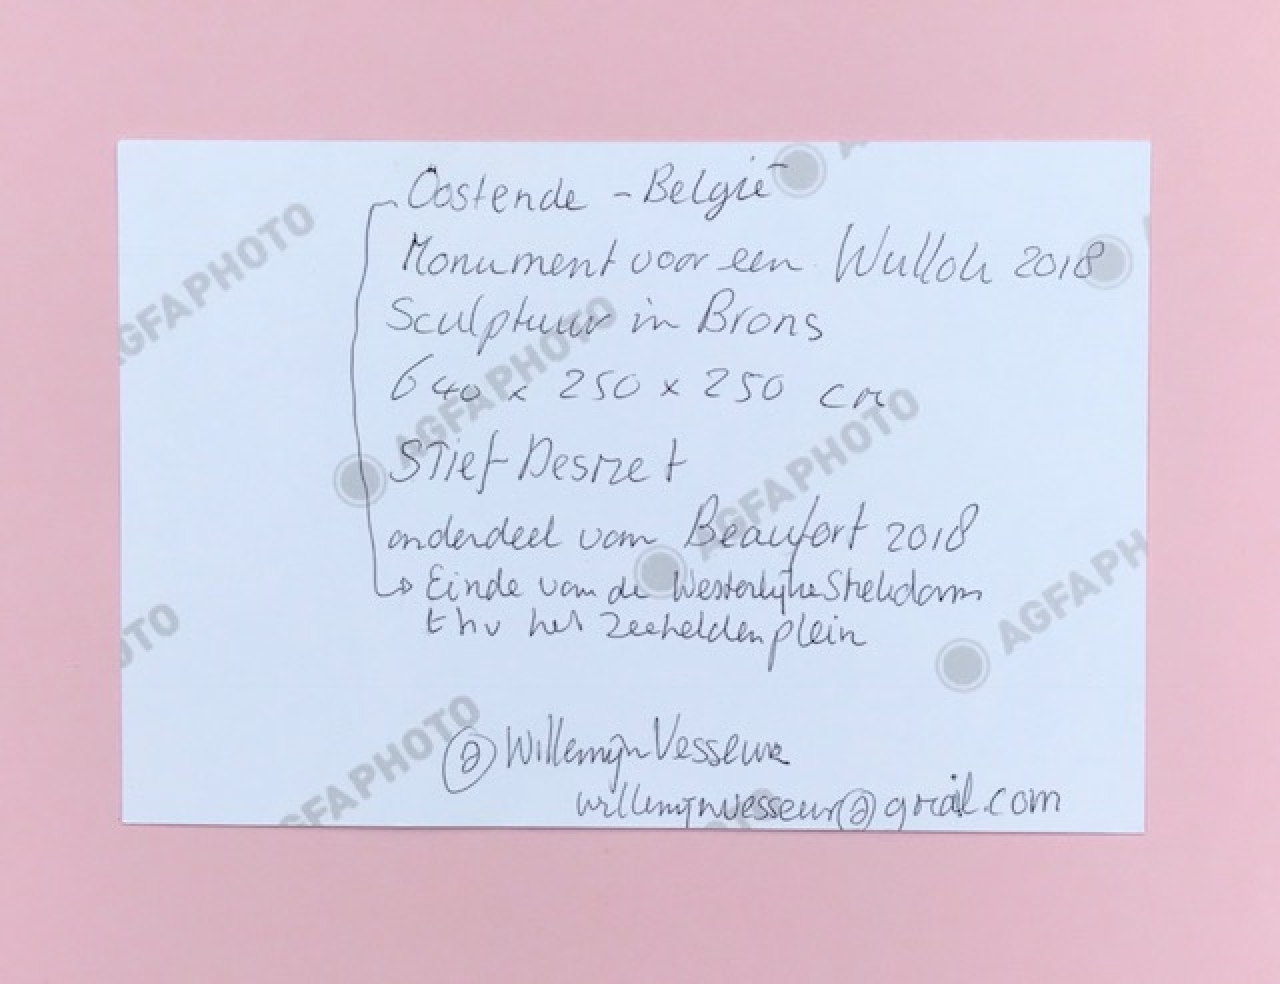 Oostende - België
Monument voor een Wullok 2018
Sculptuur in Brons
640 x 250 x 250 cm
Stief Desmet
onderdeel van Beaufort 2018
→ Einde van de Westerlijke Strekdam
thv het Zeeheldenplein
@WillemijnVesseur
willemijnvesseur@gmail.com
AGFAPHOTO
AGFAPHOTO
AGFAPHOTO
AGFAPH
OTO
FAPHOTO